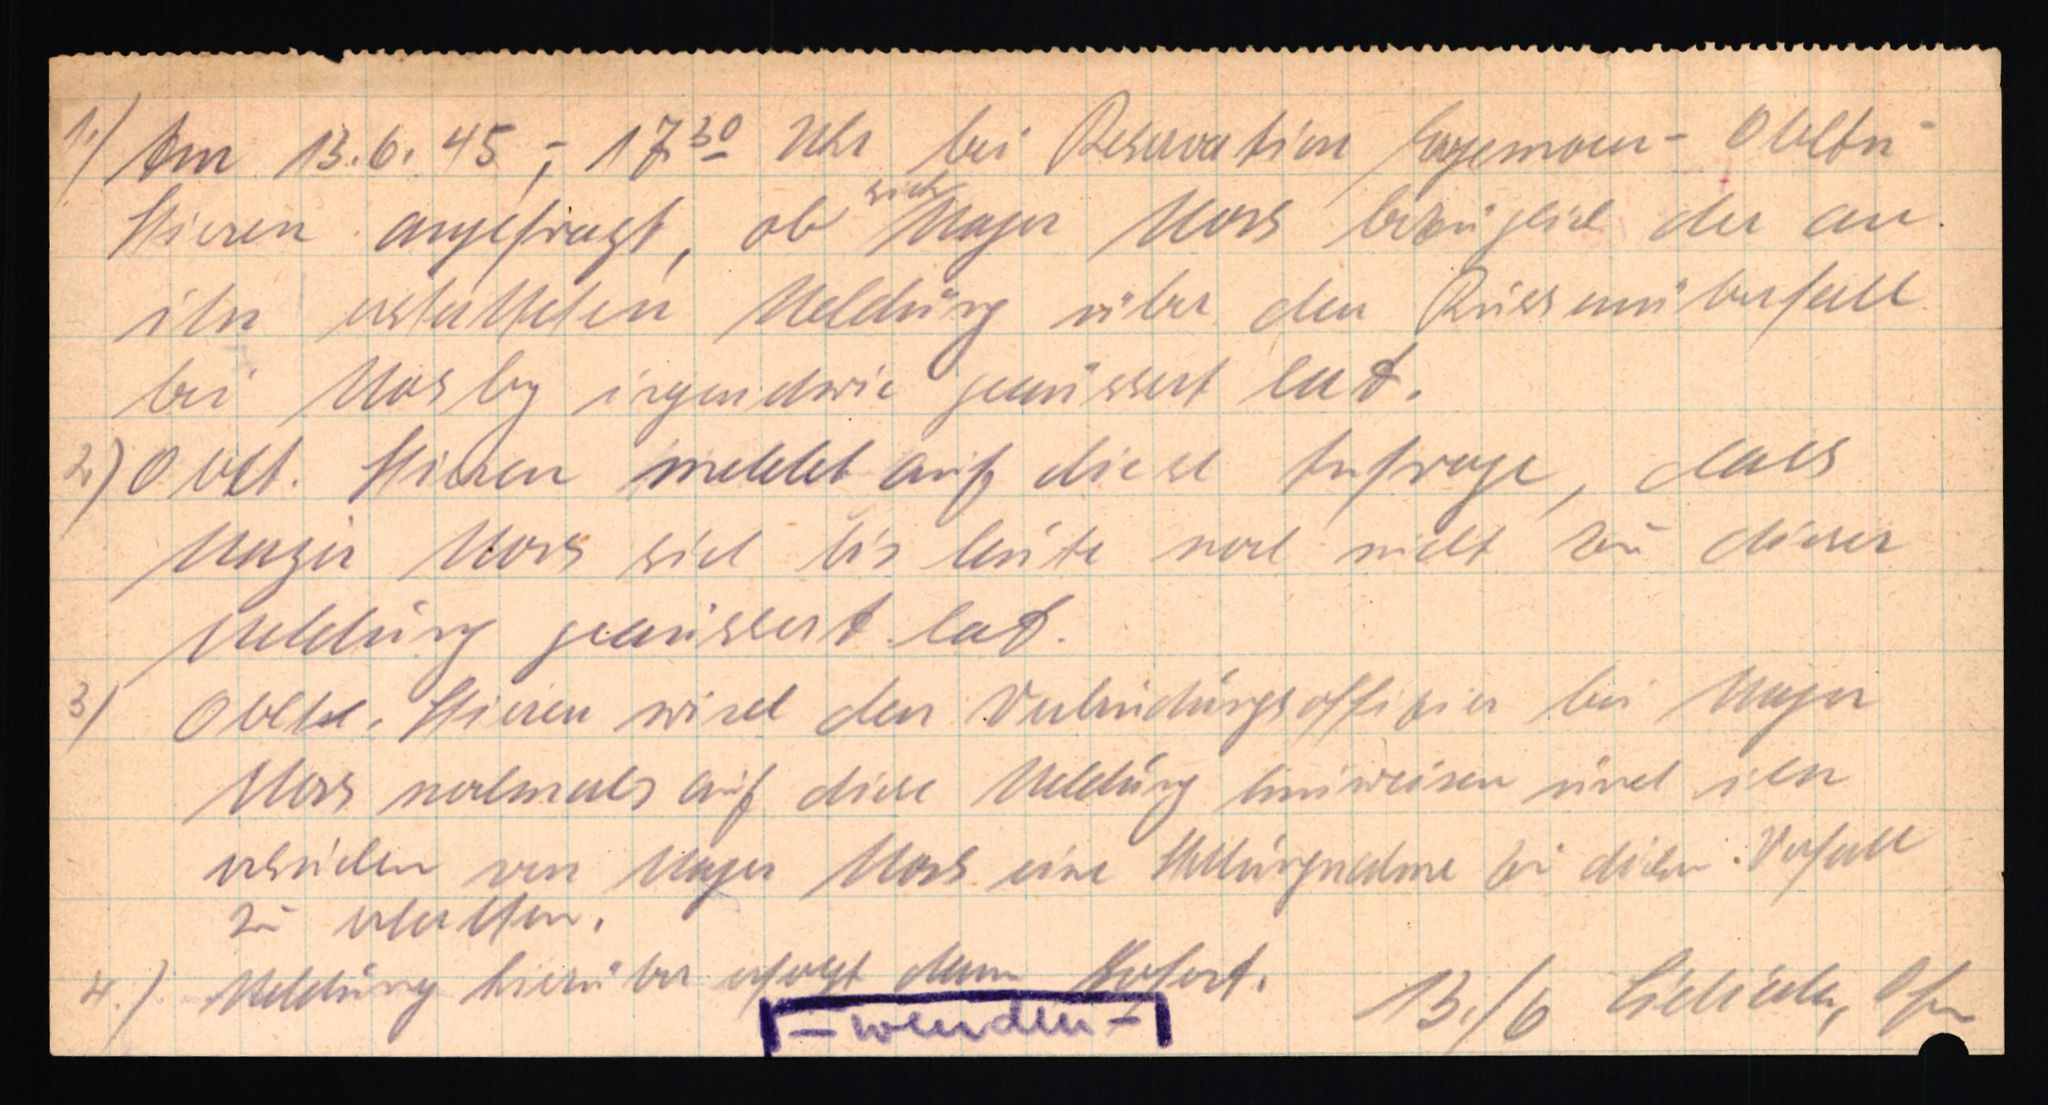 1.) Am 13.6.45, 17.30 Uhr bei Reservation Oblt.
Stieren angefragt, ob sich Major Mors bezüglich der an
ihn erstatteten Meldung über den Russenüberfall
bei Mosby irgendwie geäussert hat.
2.) Oblt. Stieren meldet auf diese Anfrage, dass
Major Mors sich bis heute noch nicht zu dieser
Meldung geäussert hat.
3) Oblt. Stieren wird den Verbindungsoffizier bei Major
Mors nochmals auf diese Meldung hinweisen und ihn
ersuchen von Major Mors eine Stellungnahme zu diesem Vorfall
zu erhalten.
4.) Meldung hierüber erfolgt dann sofort.
13./6
- wenden -